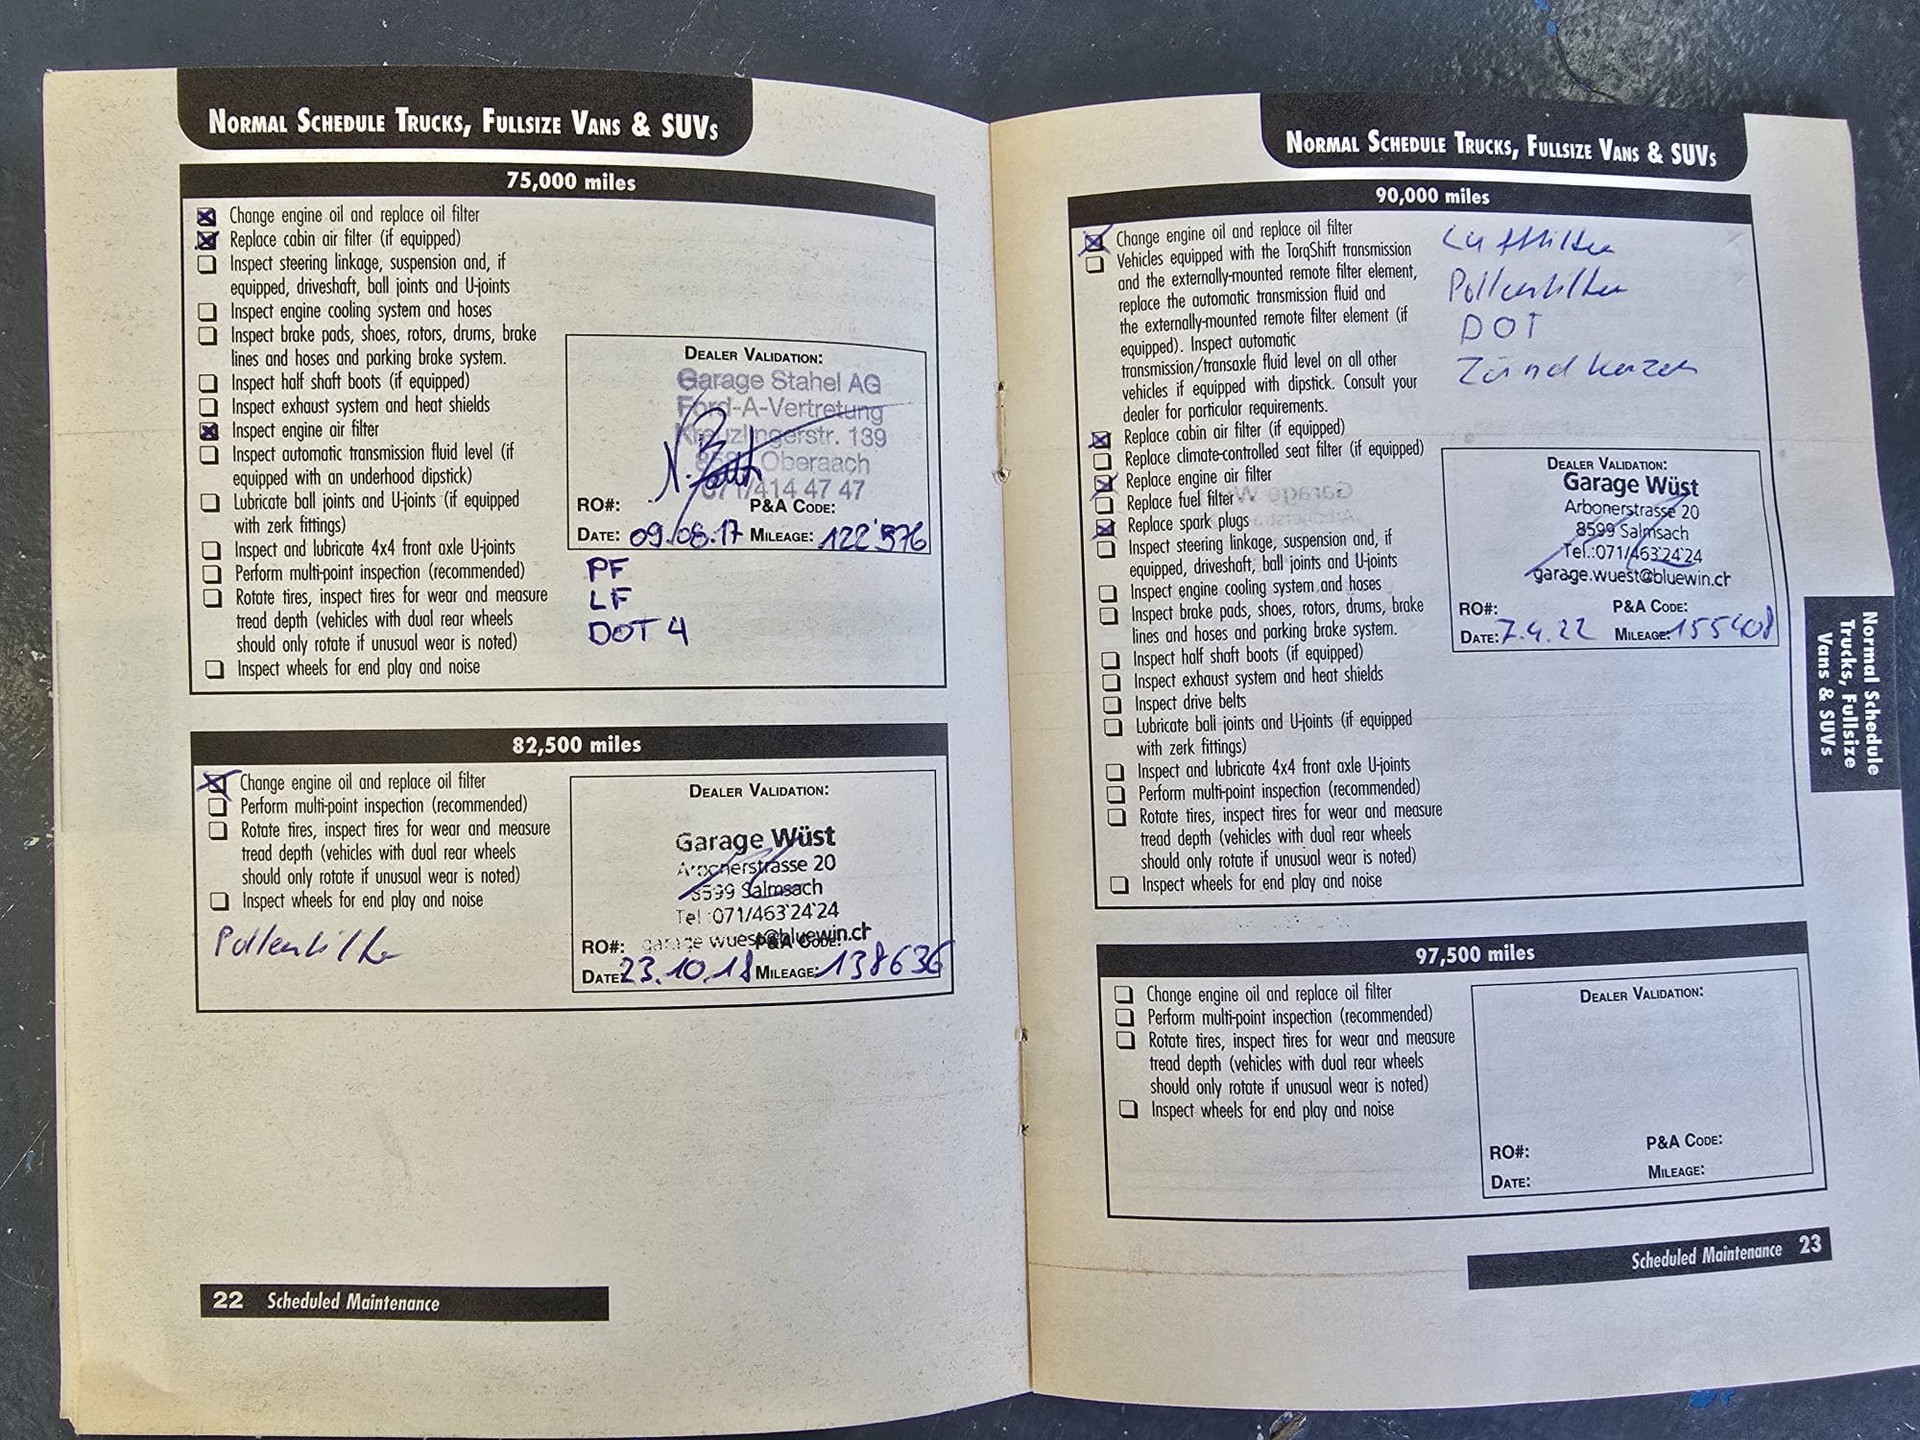 NORMAL SCHEDULE TRUCKS, FULLSIZE VANS & SUVS
75,000 miles
Change engine oil and replace oil filter
Replace cabin air filter (if equipped)
Inspect steering linkage, suspension and, if
equipped, driveshaft, ball joints and U-joints
Inspect engine cooling system and hoses
Inspect brake pads, shoes, rotors, drums, brake
lines and hoses and parking brake system.
Inspect half shaft boots (if equipped)
Inspect exhaust system and heat shields
Inspect engine air filter
Inspect automatic transmission fluid level (if
equipped with an underhood dipstick)
Lubricate ball joints and U-joints (if equipped
with zerk fittings)
Inspect and lubricate 4x4 front axle U-joints
Perform multi-point inspection (recommended)
Rotate tires, inspect tires for wear and measure
tread depth (vehicles with dual rear wheels
should only rotate if unusual wear is noted)
Inspect wheels for end play and noise
DEALER VALIDATION:
Garage Stahel AG
Ford-A-Vertretung
Kreuzlingerstr. 139
Oberaach
071/414 47 47
RO#: P&A CODE:
DATE: 09.08.17 MILEAGE: 122'576
PF
LF
DOT 4
82,500 miles
Change engine oil and replace oil filter
Perform multi-point inspection (recommended)
Rotate tires, inspect tires for wear and measure
tread depth (vehicles with dual rear wheels
should only rotate if unusual wear is noted)
Inspect wheels for end play and noise
Pollenfilter
DEALER VALIDATION:
Garage Wüst
Arbonerstrasse 20
8599 Salmsach
Tel.:071/463'24'24
garage.wuest@bluewin.ch
RO#: P&A CODE:
DATE: 23.10.18 MILEAGE: 138636
22 Scheduled Maintenance
NORMAL SCHEDULE TRUCKS, FULLSIZE VANS & SUVS
90,000 miles
Change engine oil and replace oil filter
Vehicles equipped with the TorqShift transmission
and the externally-mounted remote filter element,
replace the automatic transmission fluid and
the externally-mounted remote filter element (if
equipped). Inspect automatic
transmission/transaxle fluid level on all other
vehicles if equipped with dipstick. Consult your
dealer for particular requirements.
Replace cabin air filter (if equipped)
Replace climate-controlled seat filter (if equipped)
Replace engine air filter
Replace fuel filter
Replace spark plugs
Inspect steering linkage, suspension and, if
equipped, driveshaft, ball joints and U-joints
Inspect engine cooling system and hoses
Inspect brake pads, shoes, rotors, drums, brake
lines and hoses and parking brake system.
Inspect half shaft boots (if equipped)
Inspect exhaust system and heat shields
Inspect drive belts
Lubricate ball joints and U-joints (if equipped
with zerk fittings)
Inspect and lubricate 4x4 front axle U-joints
Perform multi-point inspection (recommended)
Rotate tires, inspect tires for wear and measure
tread depth (vehicles with dual rear wheels
should only rotate if unusual wear is noted)
Inspect wheels for end play and noise
Luftfilter
Pollenfilter
DOT
Zündkerzen
DEALER VALIDATION:
Garage Wüst
Arbonerstrasse 20
8599 Salmsach
Tel.:071/463'24'24
garage.wuest@bluewin.ch
RO#: P&A CODE:
DATE: 7.4.22 MILEAGE: 155408
97,500 miles
Change engine oil and replace oil filter
Perform multi-point inspection (recommended)
Rotate tires, inspect tires for wear and measure
tread depth (vehicles with dual rear wheels
should only rotate if unusual wear is noted)
Inspect wheels for end play and noise
DEALER VALIDATION:
RO#: P&A CODE:
DATE: MILEAGE:
Normal Schedule
Trucks, Fullsize
Vans & SUVs
Scheduled Maintenance 23